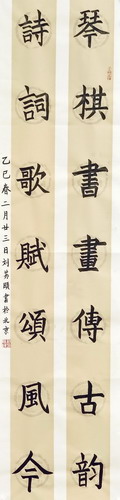 琴棋書畫傳古韵
詩詞歌賦頌風今
乙巳春二月廿三日刘英頤書於北京